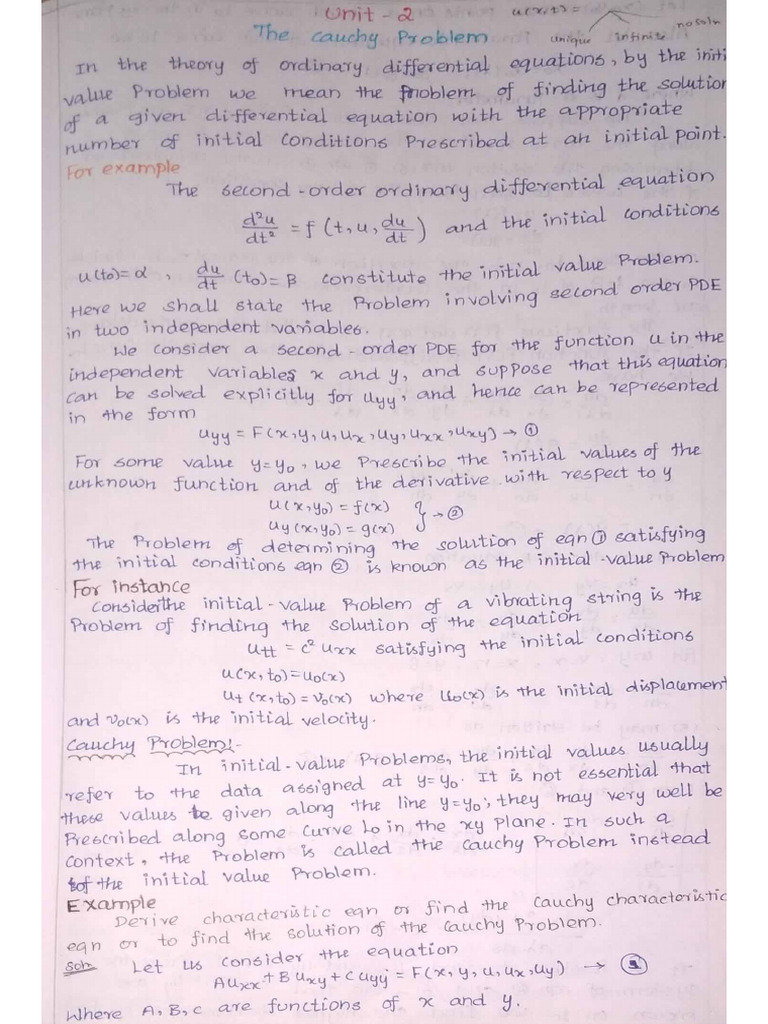 Unit - 2
u(x,t) =
unique infinite no soln
The Cauchy Problem
In the theory of ordinary differential equations, by the initi
value Problem we mean the Problem of finding the solution
of a given differential equation with the appropriate
number of initial conditions Prescribed at an initial point.
For example
The second-order ordinary differential equation
d²u/dt² = f (t, u, du/dt) and the initial conditions
u(t₀) = α , du/dt (t₀) = β constitute the initial value Problem.
Here we shall state the Problem involving second order PDE
in two independent variables.
We consider a second-order PDE for the function u in the
independent variables x and y, and suppose that this equation
can be solved explicitly for uyy, and hence can be represented
in the form
uyy = F(x, y, u, ux, uy, uxx, uxy) → ①
For some value y = y₀, we Prescribe the initial values of the
unknown function and of the derivative with respect to y
u(x, y₀) = f(x)
uy(x, y₀) = g(x) } → ②
The Problem of determining the solution of eqn ① satisfying
the initial conditions eqn ② is known as the initial-value Problem
For instance
Consider the initial-value Problem of a vibrating string is the
Problem of finding the solution of the equation
utt = c² uxx satisfying the initial conditions
u(x, t₀) = u₀(x)
ut (x, t₀) = v₀(x) where u₀(x) is the initial displacement
and v₀(x) is the initial velocity.
Cauchy Problem:-
In initial-value Problems, the initial values usually
refer to the data assigned at y = y₀. It is not essential that
these values be given along the line y = y₀; they may very well be
Prescribed along some curve L₀ in the xy plane. In such a
context, the Problem is called the Cauchy Problem instead
of the initial value Problem.
Example
Derive characteristic eqn or find the Cauchy characteristic
eqn or to find the solution of the Cauchy Problem.
Soln. Let us consider the equation
Auxx + B uxy + C uyy = F(x, y, u, ux, uy) → ①
Where A, B, C are functions of x and y.